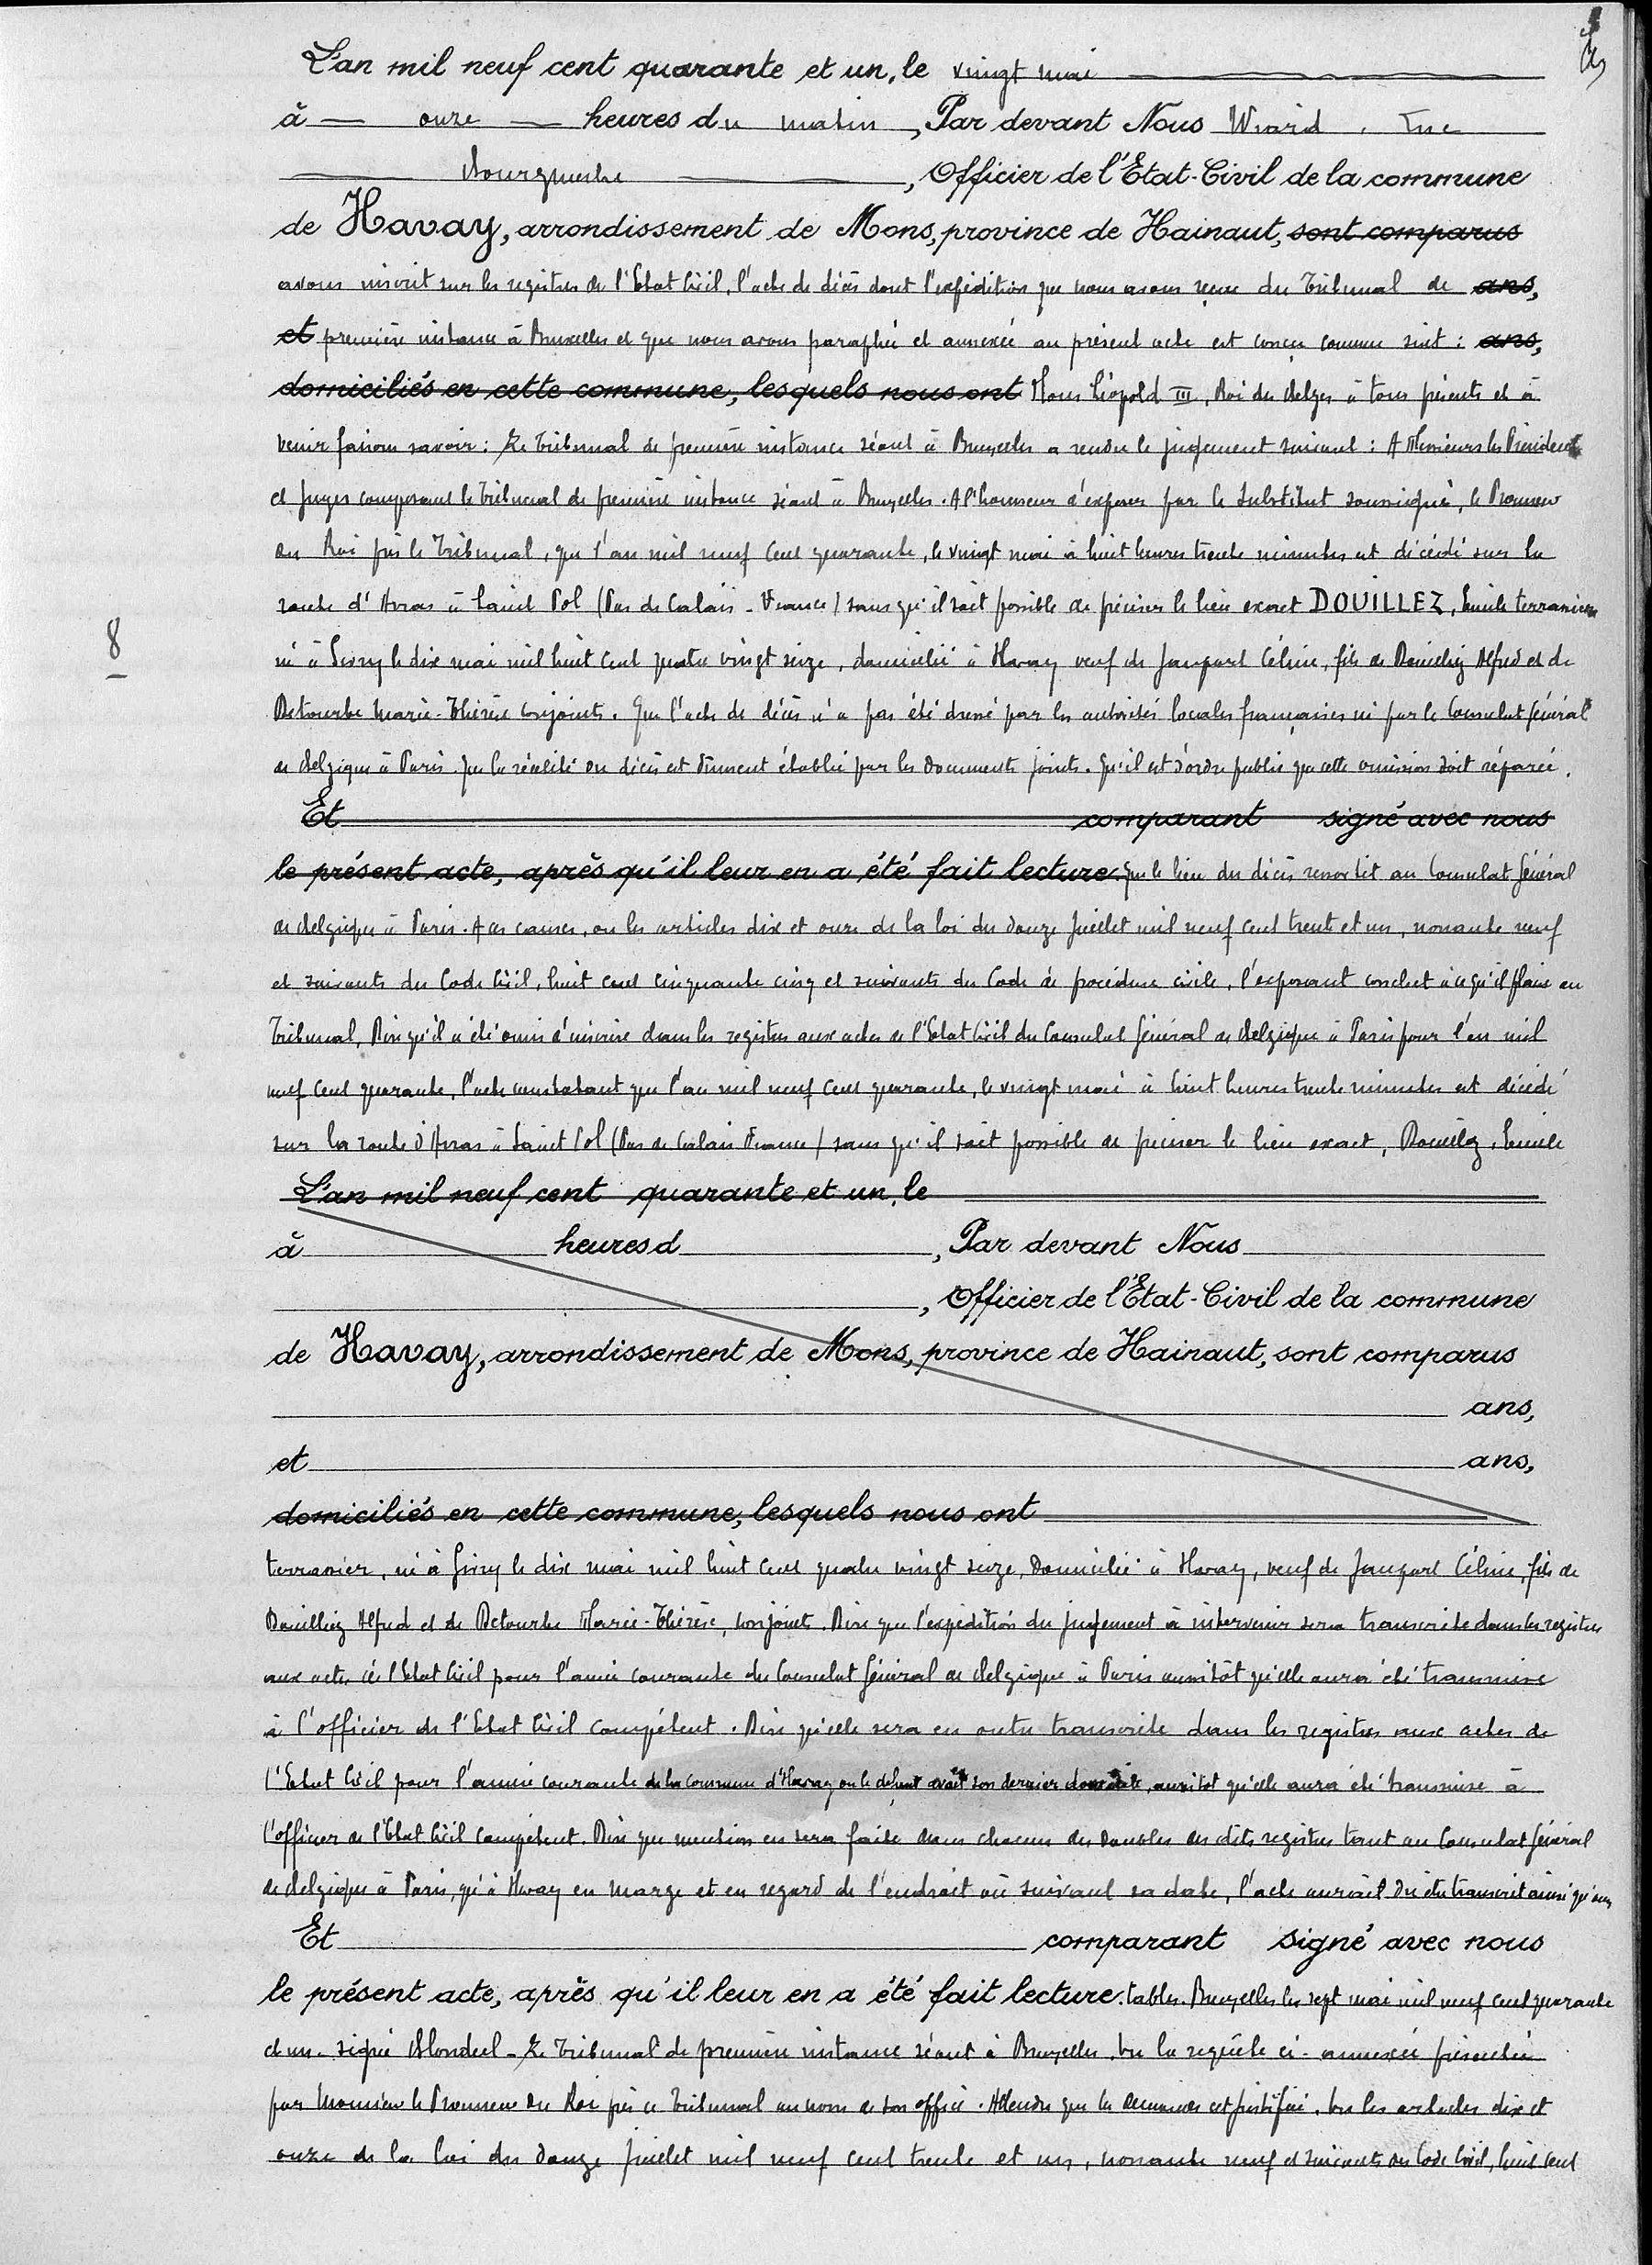 L'an mil neuf cent quarante et un, le vingt mai
à onze heures du matin, Par devant Nous Wiard, Luc
Bourgmestre, Officier de l'Etat-Civil de la commune
de Havay, arrondissement de Mons, province de Hainaut, sont comparus
avons inscrit sur les registres de l'Etat Civil, l'acte de décès dont l'expédition que nous avons reçue du Tribunal de ans,
et première instance à Bruxelles et que nous avons paraphée et annexée au présent acte est conçu comme suit : ans,
domiciliés en cette commune, lesquels nous ont Nous Léopold III, Roi des Belges à tous présents et à
venir faisons savoir : Le Tribunal de première instance séant à Bruxelles a rendu le jugement suivant : A Messieurs les Président
et Juges composant le Tribunal de première instance séant à Bruxelles. A l'honneur d'exposer par le Substitut soussigné, le Procureur
du Roi près le Tribunal, que l'an mil neuf cent quarante, le vingt mai à huit heures trente minutes est décédé sur la
route d'Arras à Saint Pol (Pas de Calais - France) sans qu'il soit possible de préciser le lieu exact DOUILLEZ, Emile terrassier
8
né à Givry le dix mai mil huit cent quatre vingt seize, domicilié à Havay veuf de Jaupart Céline, fils de Douillez Alfred et de
Detourbe Marie-Thérèse conjoints. Que l'acte de décès n'a pas été dressé par les autorités locales françaises ni par le Consulat Général
de Belgique à Paris. Que la réalité du décès est dûment établie par les documents joints. Qu'il est d'ordre public que cette omission soit réparée.
Et comparant signé avec nous
le présent acte, après qu'il leur en a été fait lecture. Que le lieu du décès ressortit au Consulat Général
de Belgique à Paris. A ces causes, vu les articles dix et onze de la loi du douze Juillet mil neuf cent trente et un, nonante neuf
et suivants du Code Civil, huit cent cinquante cinq et suivants du Code de procédure civile, l'exposant conclut à ce qu'il plaise au
Tribunal, Dire qu'il a été omis d'inscrire dans les registres aux actes de l'Etat Civil du Consulat Général de Belgique à Paris pour l'an mil
neuf cent quarante, l'acte constatant que l'an mil neuf cent quarante, le vingt mai à huit heures trente minutes est décédé
sur la route d'Arras à Saint Pol (Pas de Calais France) sans qu'il soit possible de préciser le lieu exact, Douillez, Emile
L'an mil neuf cent quarante et un, le
à heures d , Par devant Nous
, Officier de l'Etat-Civil de la commune
de Havay, arrondissement de Mons, province de Hainaut, sont comparus
ans,
et ans,
domiciliés en cette commune, lesquels nous ont
terrassier, né à Givry le dix mai mil huit cent quatre vingt seize, domicilié à Havay, veuf de Jaupart Céline, fils de
Douillez Alfred et de Detourbe Marie-Thérèse, conjoints. Dire que l'expédition du jugement à intervenir sera transcrite dans les registres
aux actes de l'Etat Civil pour l'année courante du Consulat Général de Belgique à Paris aussitôt qu'elle aura été transmise
à l'officier de l'Etat Civil compétent. Dire qu'elle sera en outre transcrite dans les registres aux actes de
l'Etat Civil pour l'année courante de la commune d'Havay ou le défunt avait son dernier domicile, aussitôt qu'elle aura été transmise à
l'officier de l'Etat Civil compétent. Dire que mention en sera faite dans chacun des doubles des dits registres tant au Consulat Général
de Belgique à Paris, qu'à Havay en marge et en regard de l'endroit où suivant sa date, l'acte aurait dû être transcrit ainsi qu'aux
Et comparant signé avec nous
le présent acte, après qu'il leur en a été fait lecture. tables. Bruxelles les sept mai mil neuf cent quarante
et un. signé Blondeel - Le Tribunal de première instance séant à Bruxelles. Vu la requête ci-annexée présentée
par Monsieur le Procureur du Roi près ce Tribunal au nom de son office. Attendu que la demande est justifiée. Vu les articles dix et
onze de la loi du douze Juillet mil neuf cent trente et un, nonante neuf et suivants du Code Civil, huit cent